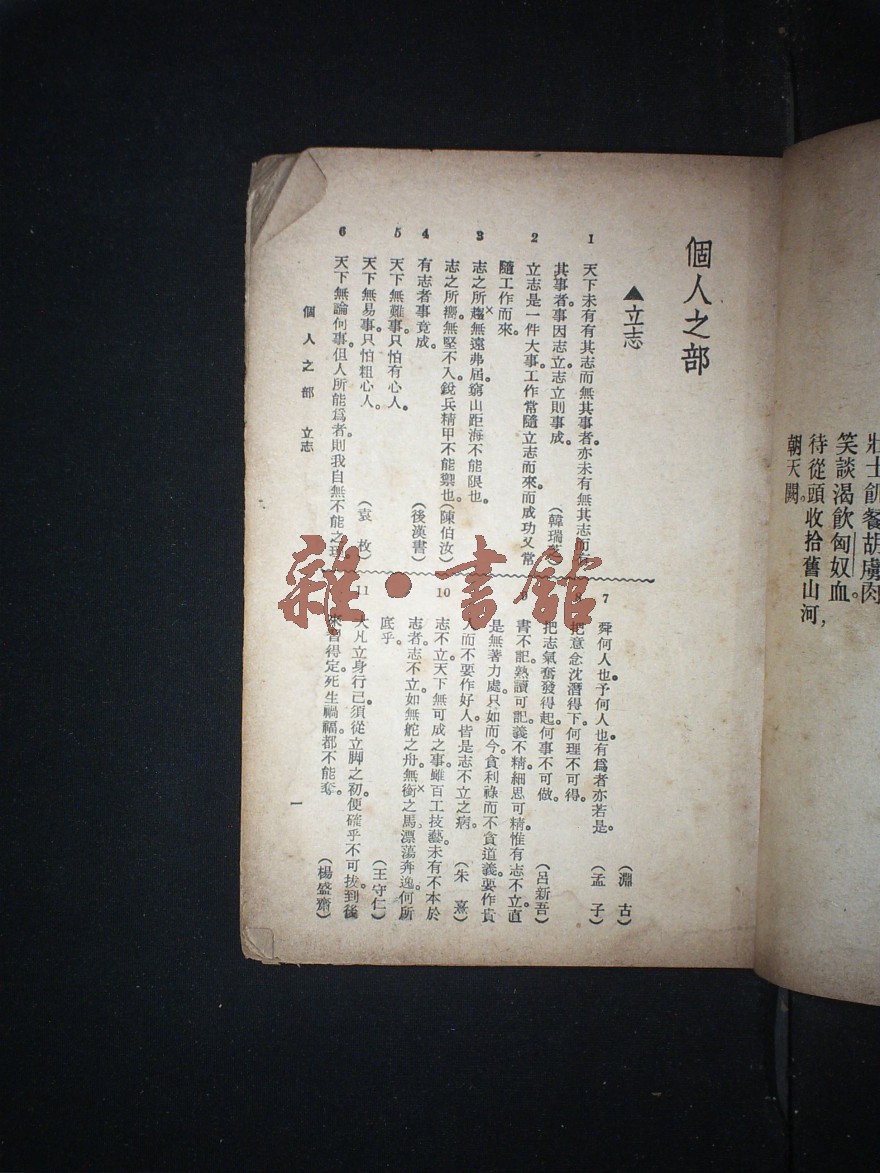 壯士飢餐胡虜肉。
笑談渴飲匈奴血。
待從頭收拾舊山河，
朝天闕。
個人之部
▲立志
1 天下未有有其志而無其事者亦未有無其志而有
其事者事因志立志立則事成。 (韓瑞芝)
2 立志是一件大事工作常隨立志而來而成功又常
隨工作而來。
3 志之所趨無遠弗屆。窮山距海不能限也。
志之所嚮無堅不入銳兵精甲不能禦也。(陳伯汝)
4 有志者事竟成。 (後漢書)
5 天下無難事。只怕有心人。
天下無易事。只怕粗心人。 (袁枚)
6 天下無論何事。但人所能爲者則我自無不能之理
(淵古)
7 舜何人也。予何人也。有爲者亦若是。 (孟子)
8 把意念沈潛得下。何理不可得。
把志氣奮發得起。何事不可做。 (呂新吾)
9 書不記。熟讀可記。義不精。細思可精。惟有志不立。直
是無著力處。只如而今。貪利祿而不貪道義。要作貴
人而不要作好人。皆是志不立之病。 (朱熹)
10 志不立。天下無可成之事。雖百工技藝。未有不本於
志者。志不立。如無舵之舟。無銜之馬。漂蕩奔逸。何所
底乎。 (王守仁)
11 大凡立身行己。須從立脚之初。便確乎不可拔。到後
來習得定。死生禍福。都不能奪。 (楊盛齋)
個人之部 立志
一
雜·書館